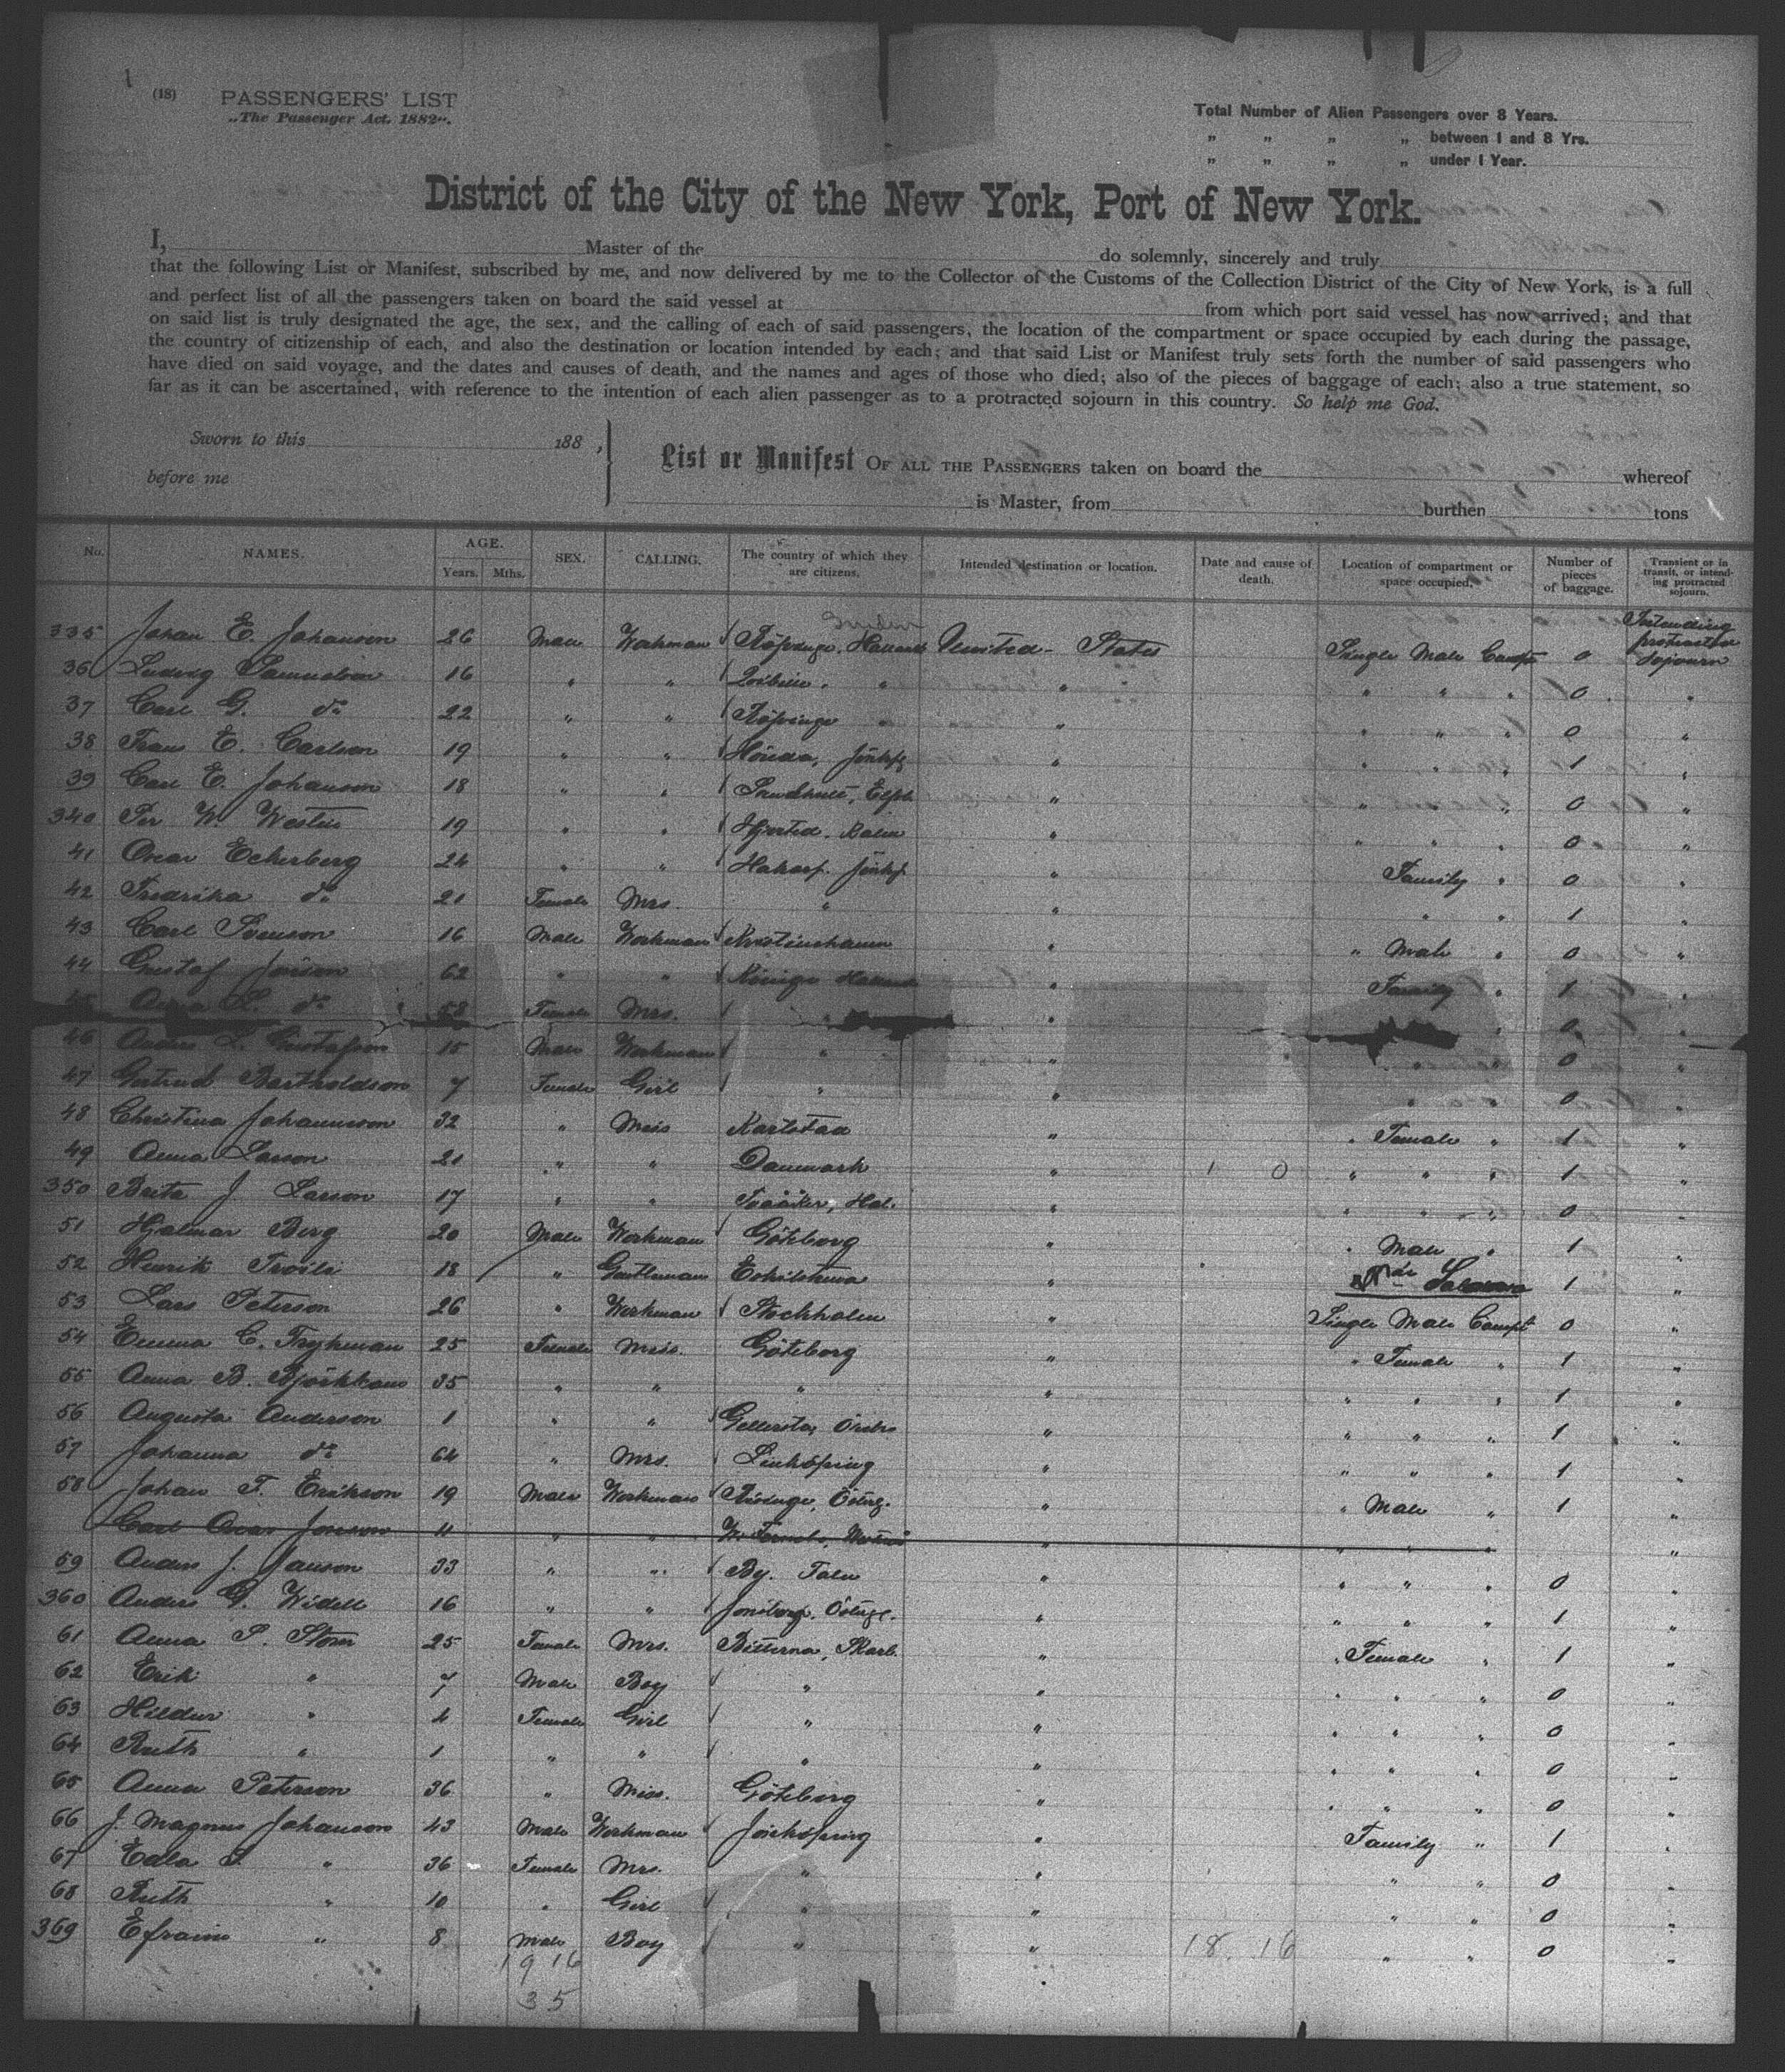 (18) PASSENGERS' LIST
„The Passenger Act, 1882“.
Total Number of Alien Passengers over 8 Years.
„ „ „ „ between 1 and 8 Yrs.
„ „ „ „ under 1 Year.
District of the City of the New York, Port of New York.
I, Master of the do solemnly, sincerely and truly
that the following List or Manifest, subscribed by me, and now delivered by me to the Collector of the Customs of the Collection District of the City of New York, is a full
and perfect list of all the passengers taken on board the said vessel at from which port said vessel has now arrived; and that
on said list is truly designated the age, the sex, and the calling of each of said passengers, the location of the compartment or space occupied by each during the passage,
the country of citizenship of each, and also the destination or location intended by each; and that said List or Manifest truly sets forth the number of said passengers who
have died on said voyage, and the dates and causes of death, and the names and ages of those who died; also of the pieces of baggage of each; also a true statement, so
far as it can be ascertained, with reference to the intention of each alien passenger as to a protracted sojourn in this country. So help me God.
Sworn to this 188 ,
before me
List or Manifest OF ALL THE PASSENGERS taken on board the whereof
is Master, from burthen tons
No. NAMES. AGE. Years. Mths. SEX. CALLING. The country of which they are citizens. Intended destination or location. Date and cause of death. Location of compartment or space occupied. Number of pieces of baggage. Transient or in transit, or intending protracted sojourn.
335 Johan E. Johanson 26 Male Workman Halland United States Single Male Compt 0 Intending protracted sojourn
36 Ludvig Samuelson 16 " " " " " " " 0 "
37 Carl G. do 22 " " " " " " " 0 "
38 Frans E. Carlson 19 " " Jönkp " " " " 1 "
39 Carl E. Johanson 18 " " " " " 0 "
340 Per W. 19 " " Hjorted, " " " " 0 "
41 Oscar Eckerberg 24 " " Hakarp. Jönkp " Family " 0 "
42 Fredrika do 21 Female Mrs. " " " " 1 "
43 Carl Svenson 16 Male Workman Kristinehamn " " Male " 0 "
44 Gustaf 62 " " Halland " Family " 1 "
45 Anna L. do 58 Female Mrs. " " " 0 "
46 Anders L. Gustafson 15 Male Workman " " " " 0 "
47 Gertrud Bartholdson 7 Female Girl " " " " 0 "
48 Christina Johannson 32 " Miss Karlstad " " Female " 1 "
49 Anna Larson 21 " " Danmark " 1 0 " " " 1 "
350 Brita J. Larson 17 " " Tvååker, Hal. " " " " 0 "
51 Hjalmar Berg 20 Male Workman Göteborg " " Male " 1 "
52 Henrik Troili 18 " Gentleman Eskilstuna " Saloon 1 "
53 Lars Peterson 26 " Workman Stockholm " Single Male Compt 0 "
54 Emma C. Frykman 25 Female Miss. Göteborg " " Female " 1 "
55 Anna B. 35 " " " " " " " 1 "
56 Augusta Anderson 1 " " Gellersta, Örebro " " " " 1 "
57 Johanna do 64 " Mrs. Linköping " " " " 1 "
58 Johan F. Erikson 19 Male Workman " " Male " 1 "
Carl Oscar Jonson 11 " " " " " " "
59 Anders J. Janson 33 " " By. Falu " " " " 0 "
360 Anders G. Widell 16 " " " " " " 1 "
61 Anna S. Storm 25 Female Mrs. Bitterna, Skarb. " " Female " 1 "
62 Erik " 7 Male Boy " " " " " 0 "
63 Hildur " 4 Female Girl " " " " " 0 "
64 Ruth " 1 " " " " " " 0 "
65 Anna Peterson 36 " Miss. Göteborg " " " " 0 "
66 J. Magnus Johanson 43 Male Workman Jönköping " Family " 1 "
67 " 36 Female Mrs. " " " " 0 "
68 Ruth " 10 " Girl " " " " 0 "
369 Efraim " 8 Male Boy " " 18. 16 " " 0 "
19 16
35